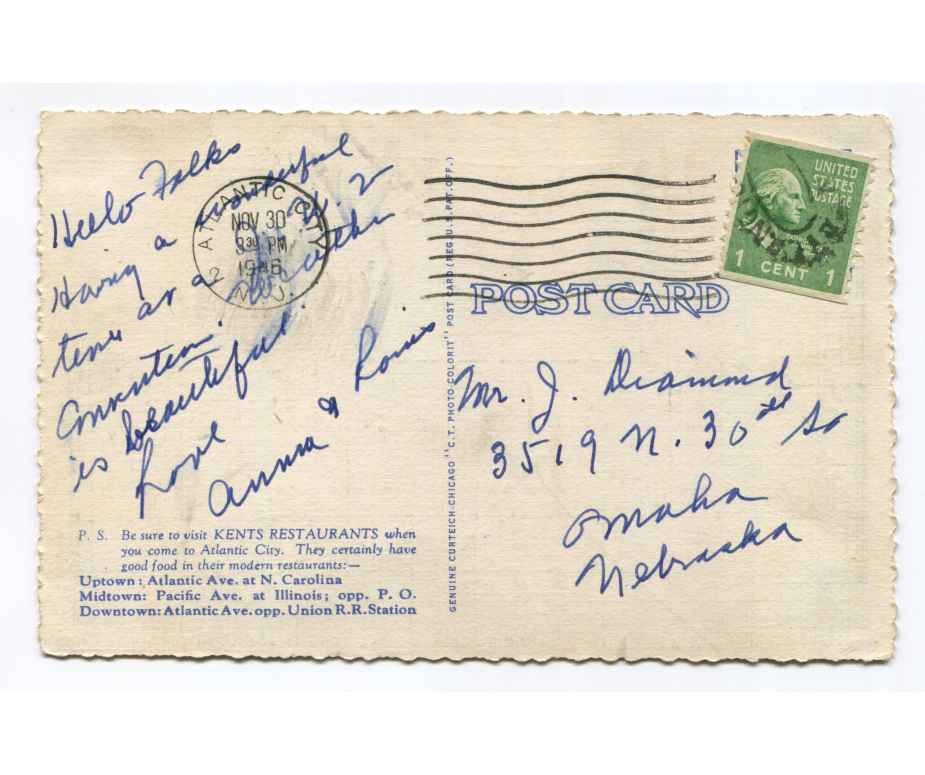 Hello Folks
Having a wonderful
time at a
Convention.
weather
is beautiful.
Love
Anna & Louis
P. S. Be sure to visit KENTS RESTAURANTS when
you come to Atlantic City. They certainly have
good food in their modern restaurants:—
Uptown: Atlantic Ave. at N. Carolina
Midtown: Pacific Ave. at Illinois; opp. P. O.
Downtown: Atlantic Ave. opp. Union R.R. Station
GENUINE CURTEICH-CHICAGO "C.T. PHOTO COLORIT" POST CARD (REG. U.S. PAT. OFF.)
ATLANTIC CITY
2 N.J.
NOV 30
3 30 PM
1946
POST CARD
UNITED
STATES
POSTAGE
1 CENT 1
Mr. J. Diamond
3519 N. 30th
Omaha
Nebraska